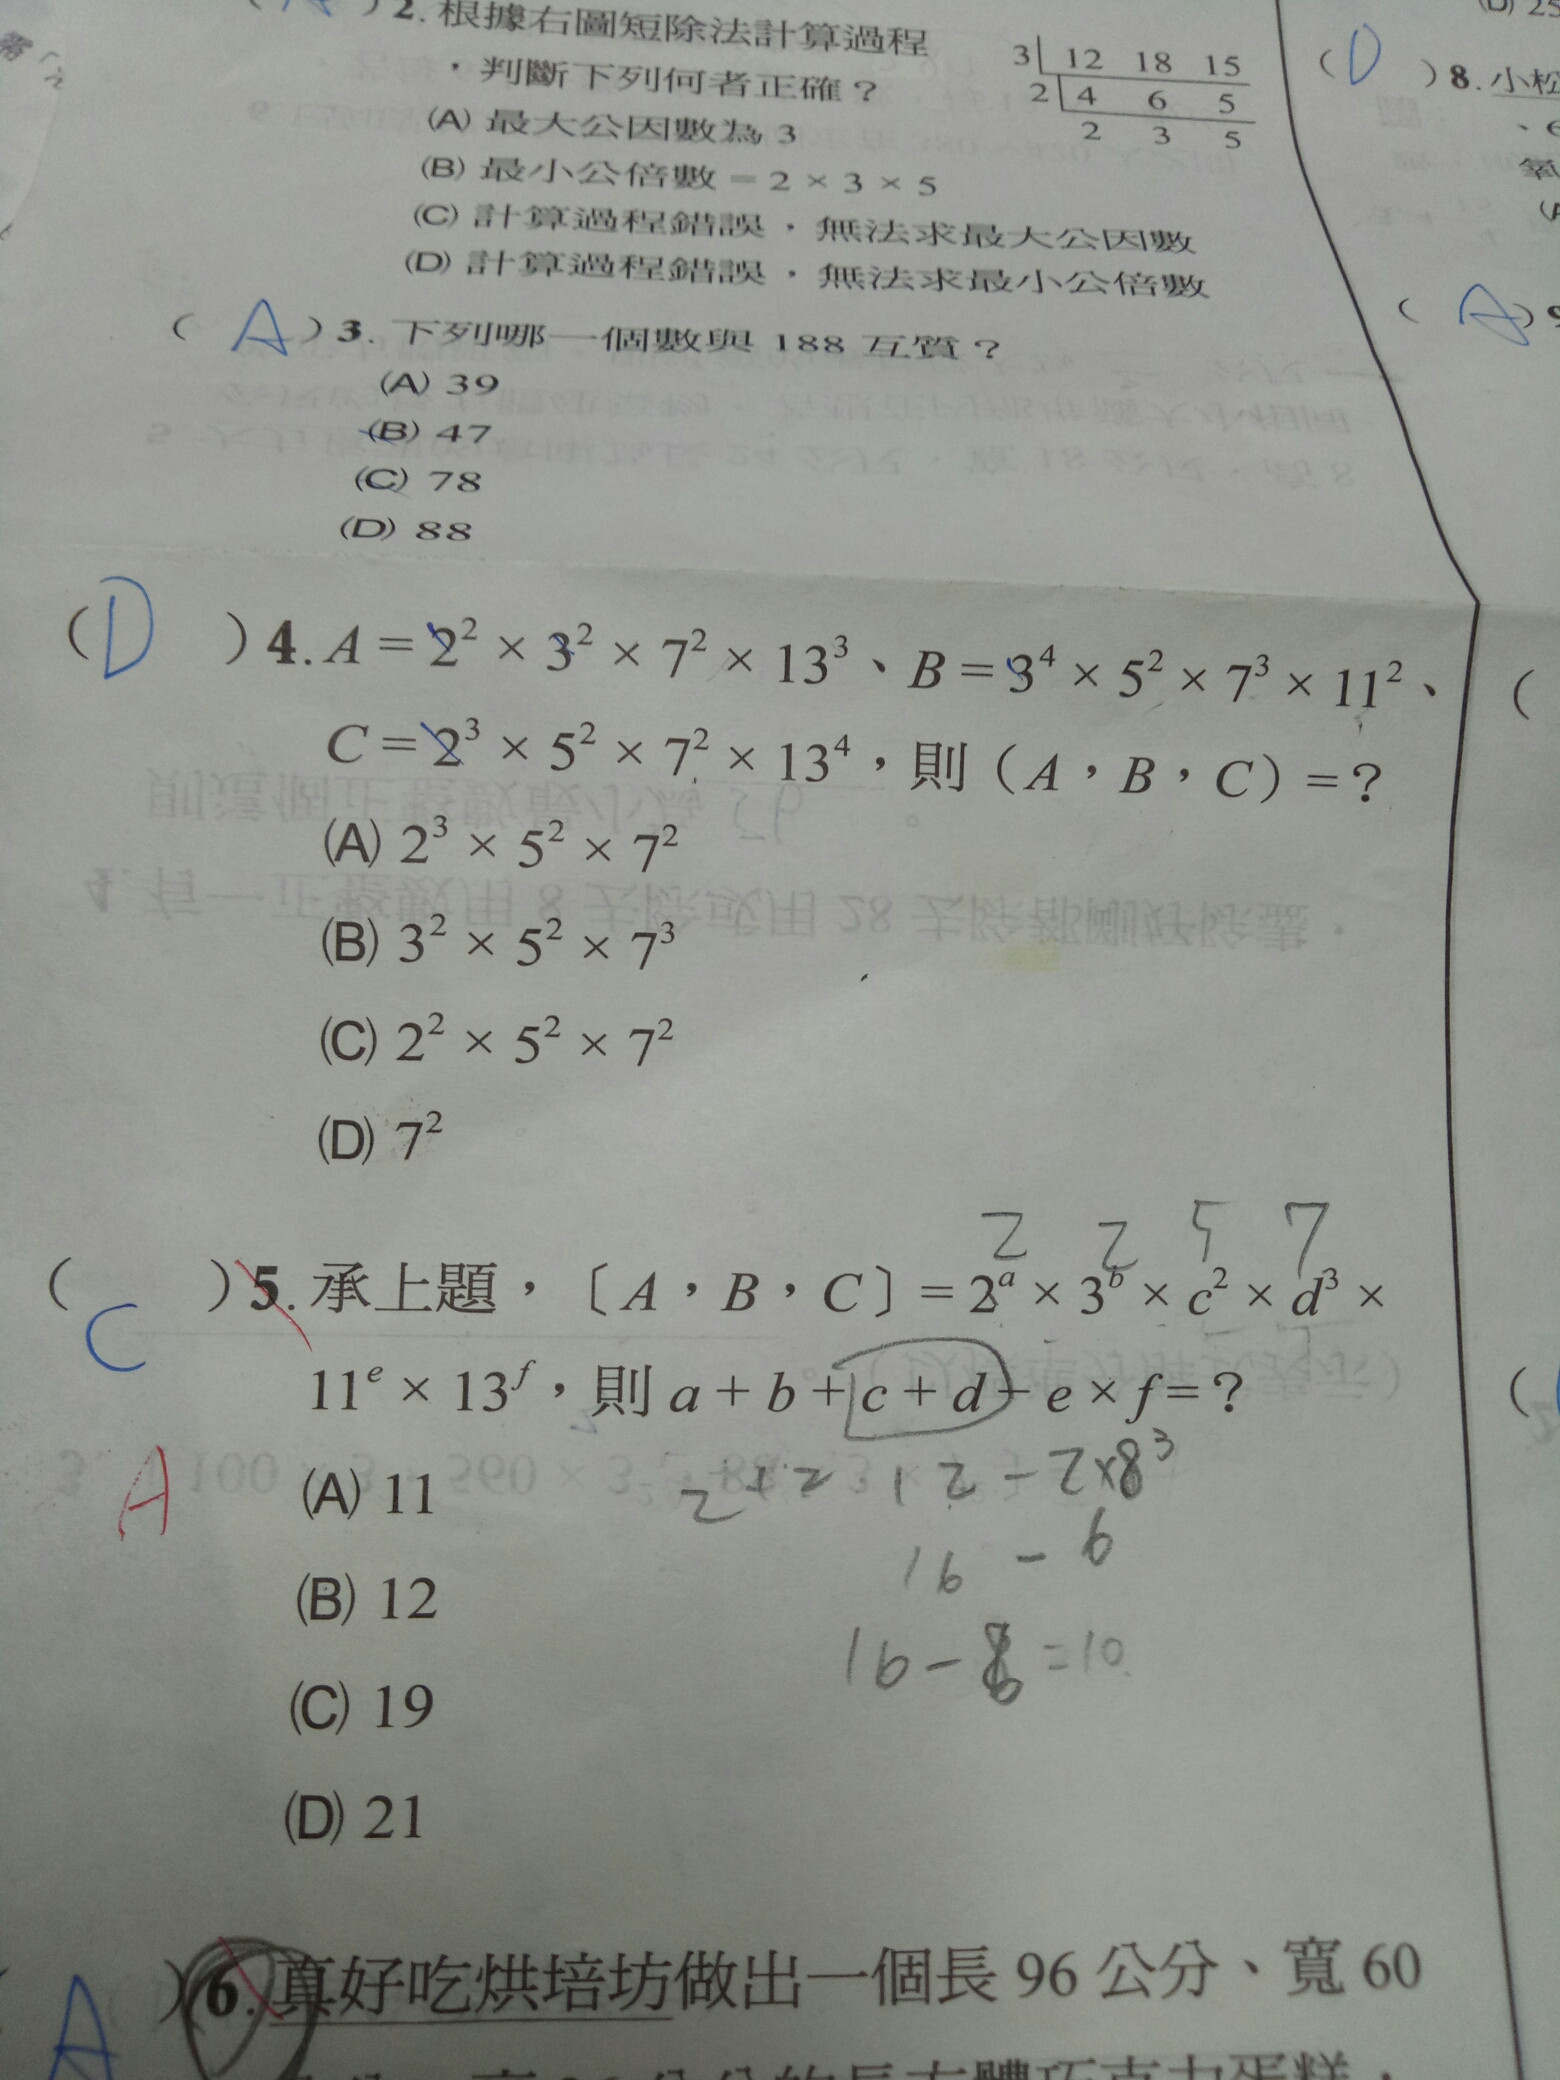 )2. 根據右圖短除法計算過程
，判斷下列何者正確？
(A) 最大公因數為 3
(B) 最小公倍數 = 2 × 3 × 5
(C) 計算過程錯誤，無法求最大公因數
(D) 計算過程錯誤，無法求最小公倍數
3 12 18 15
2 4 6 5
2 3 5
( A )3. 下列哪一個數與 188 互質？
(A) 39
(B) 47
(C) 78
(D) 88
( D )4. A = 2² × 3² × 7² × 13³、B = 3⁴ × 5² × 7³ × 11²、
C = 2³ × 5² × 7² × 13⁴，則（A，B，C）= ?
(A) 2³ × 5² × 7²
(B) 3² × 5² × 7³
(C) 2² × 5² × 7²
(D) 7²
2 2 5 7
( C )5. 承上題，〔A，B，C〕= 2ᵃ × 3ᵇ × c² × d³ ×
11ᵉ × 13ᶠ，則 a + b + c + d - e × f = ?
A
(A) 11
(B) 12
(C) 19
(D) 21
2 + 2 12 - 2×8³
16 - 6
16 - 6 = 10
A )6. 真好吃烘培坊做出一個長 96 公分、寬 60
( D )8. 小松
氧
( A )9